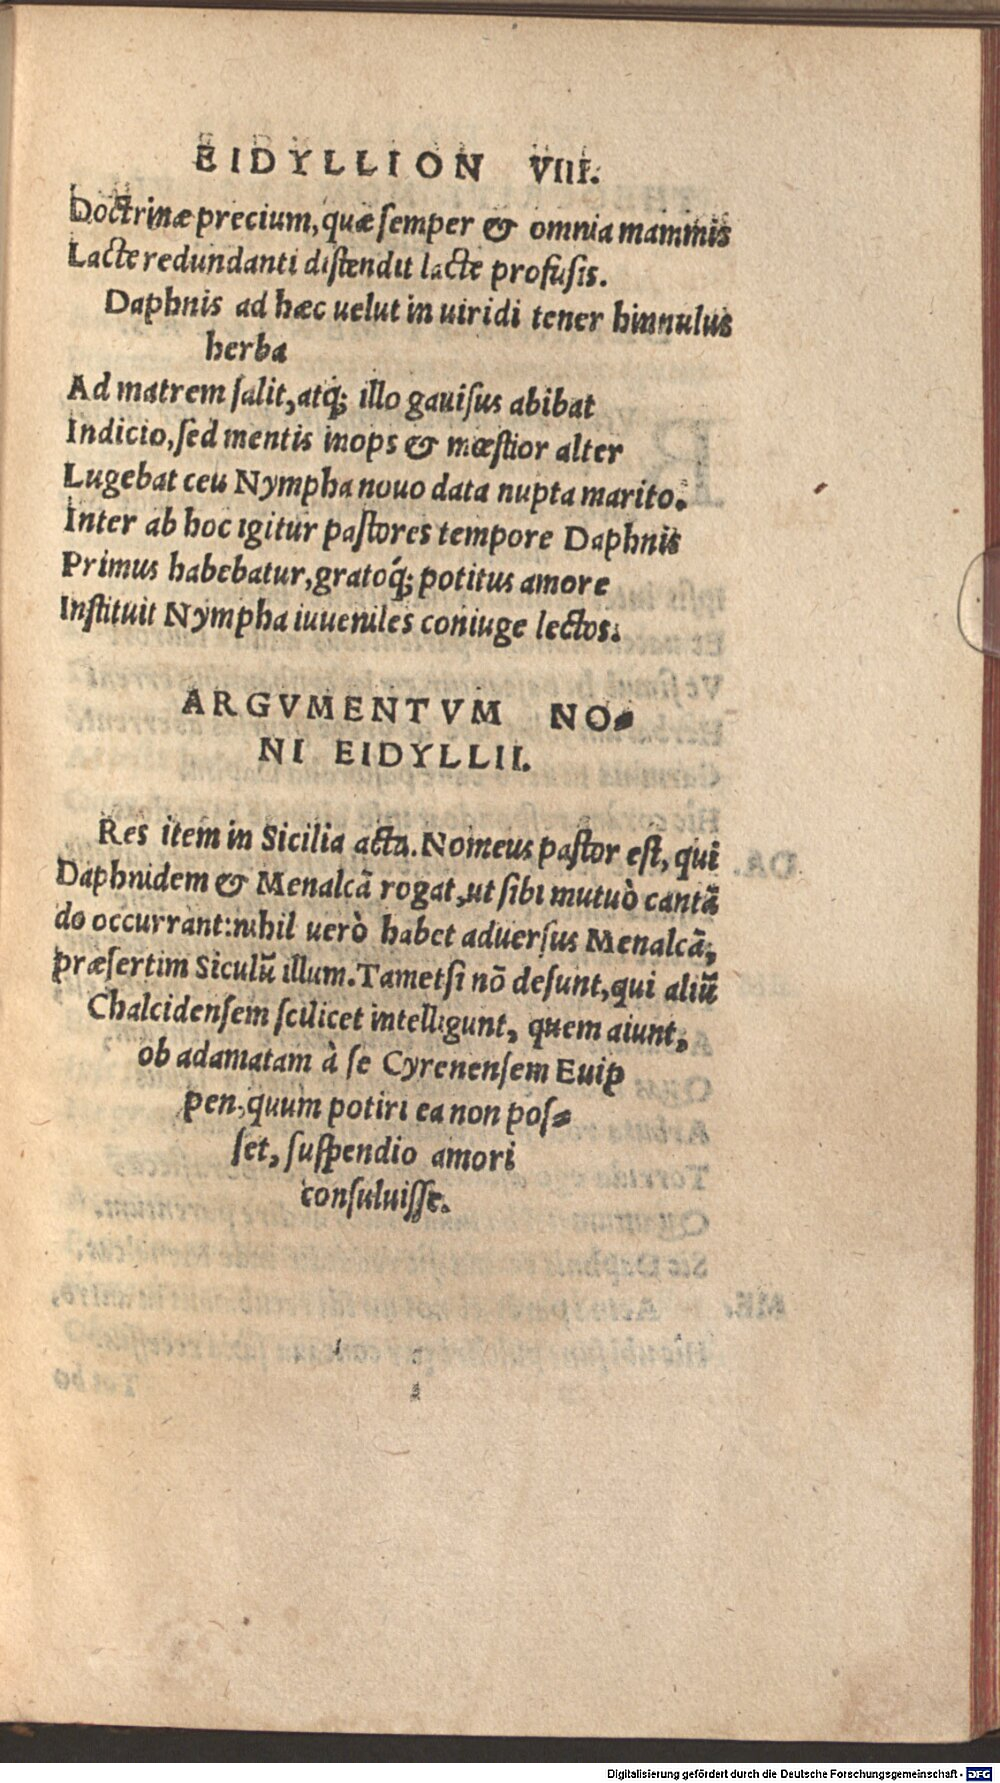 EIDYLLION VIII.
Doctrinæ precium, quæ semper & omnia mammis
Lacte redundanti distendit lacte profusis.
Daphnis ad hæc uelut in uiridi tener hinnulus
herba
Ad matrem salit, atq; illo gauisus abibat
Indicio, sed mentis inops & mœstior alter
Lugebat ceu Nympha nouo data nupta marito.
Inter ab hoc igitur pastores tempore Daphnis
Primus habebatur, gratoq́; potitus amore
Instituit Nympha iuueniles coniuge lectos.
ARGVMENTVM NO-
NI EIDYLLII.
Res item in Sicilia acta. Nomeus pastor est, qui
Daphnidem & Menalcā rogat, ut sibi mutuò cantā
do occurrant: nihil uerò habet aduersus Menalcā,
præsertim Siculū illum. Tametsi nō desunt, qui aliū
Chalcidensem scilicet intelligunt, quem aiunt,
ob adamatam à se Cyrenensem Euip
pen, quum potiri ea non pos-
set, suspendio amori
consuluisse.
Digitalisierung gefördert durch die Deutsche Forschungsgemeinschaft - DFG